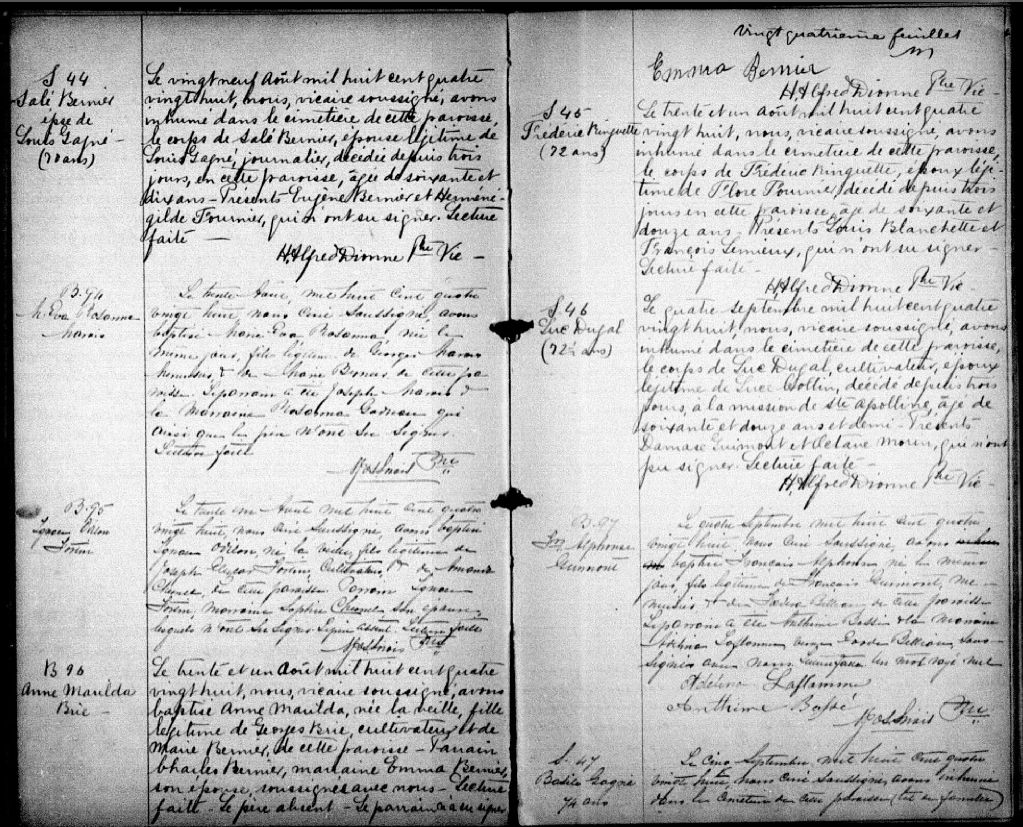 S 44
Salé Bernier
épse de
Louis Gagné
(70 ans)
Le vingt neuf Août mil huit cent quatre
vingt huit, nous, vicaire soussigné, avons
inhumé dans le cimetière de cette paroisse,
le corps de Salé Bernier, épouse légitime de
Louis Gagné, journalier, décédée depuis trois
jours, en cette paroisse, âgée de soixante et
dix ans - Présents Eugène Bernier et Herméné-
gilde Fournier, qui n'ont su signer. Lecture
faite -
H. Alfred Dionne Ptre Vic -
B. 94
M. Eva Rosanna
Marois
Le trente Août, mil huit cent quatre
vingt huit, nous Curé Soussigné, avons
baptisé Marie Eva Rosanna née le
même jour, fille légitime de Georges Marois
menuisier & de Marie Bernier de cette pa
roisse. Le parrain a été Joseph Marois &
la Marraine Rosanna qui
ainsi que le père n'ont su signer.
Lecture faite
Ptre
B. 95
Ignace Odilon
Fortin
Le trente un Août mil huit cent quatre
vingt huit, nous Curé Soussigné, avons baptisé
Ignace Odilon né la veille, fils légitime de
Joseph Fortin, Cultivateur, & de
de cette paroisse Parrain Ignace
Fortin, Marraine Sophie son épouse,
lesquels n'ont su signer le père absent. Lecture faite
Ptre
B 96
Anne Maulda
Brie -
Le trente et un Août mil huit cent quatre
vingt huit, nous, vicaire soussigné, avons
baptisé Anne Maulda, née la veille, fille
légitime de Georges Brie, cultivateur et de
Marie Bernier, de cette paroisse - Parrain
Charles Bernier, marraine Emma Bernier,
son épouse, soussignés avec nous - Lecture
faite - le père absent - Le parrain a su signer
vingt quatrième feuillet
Emma Bernier
H. Alfred Dionne Ptre Vic -
S 45
Fréderic Ringuette
(72 ans)
Le trente et un Août mil huit cent quatre
vingt huit, nous, vicaire soussigné, avons
inhumé dans le cimetière de cette paroisse,
le corps de Fréderic Ringuette, époux légi-
time de Flore Fournier, décédé depuis trois
jours en cette paroisse, âgé de soixante et
douze ans - Présents Louis Blanchette et
François Lemieux, qui n'ont su signer -
Lecture faite -
H. Alfred Dionne Ptre Vic -
S 46
Luc Dugal
(72½ ans)
Le quatre septembre mil huit cent quatre
vingt huit, nous, vicaire soussigné, avons
inhumé dans le cimetière de cette paroisse,
le corps de Luc Dugal, cultivateur, époux
légitime de Luce Collin, décédé depuis trois
jours, à la mission de Ste Apolline, âgé de
soixante et douze ans et demi - Présents
Damase Guimont et Octave Morin, qui n'ont
pu signer. Lecture faite -
H. Alfred Dionne Ptre Vic -
B. 97
Frs Alphonse
Guimont
Le quatre Septembre mil huit cent quatre
vingt huit nous Curé Soussigné, avons
baptisé François Alphonse né le même
jour, fils légitime de François Guimont, me
nuisier & de Pelletier de cette paroisse
Le parrain a été Anthime Babbé & la Marraine
Adelina Laflamme Pelletier Sous-
signés avec nous. Lecture faite Un mot rayé nul
Adelina Laflamme
Anthime Babbé
Ptre
S. 47
Basile Gagné
74 ans
Le Cinq Septembre, mil huit cent quatre
vingt huit, nous Curé Soussigné, avons inhumé
dans le Cimetière de cette paroisse